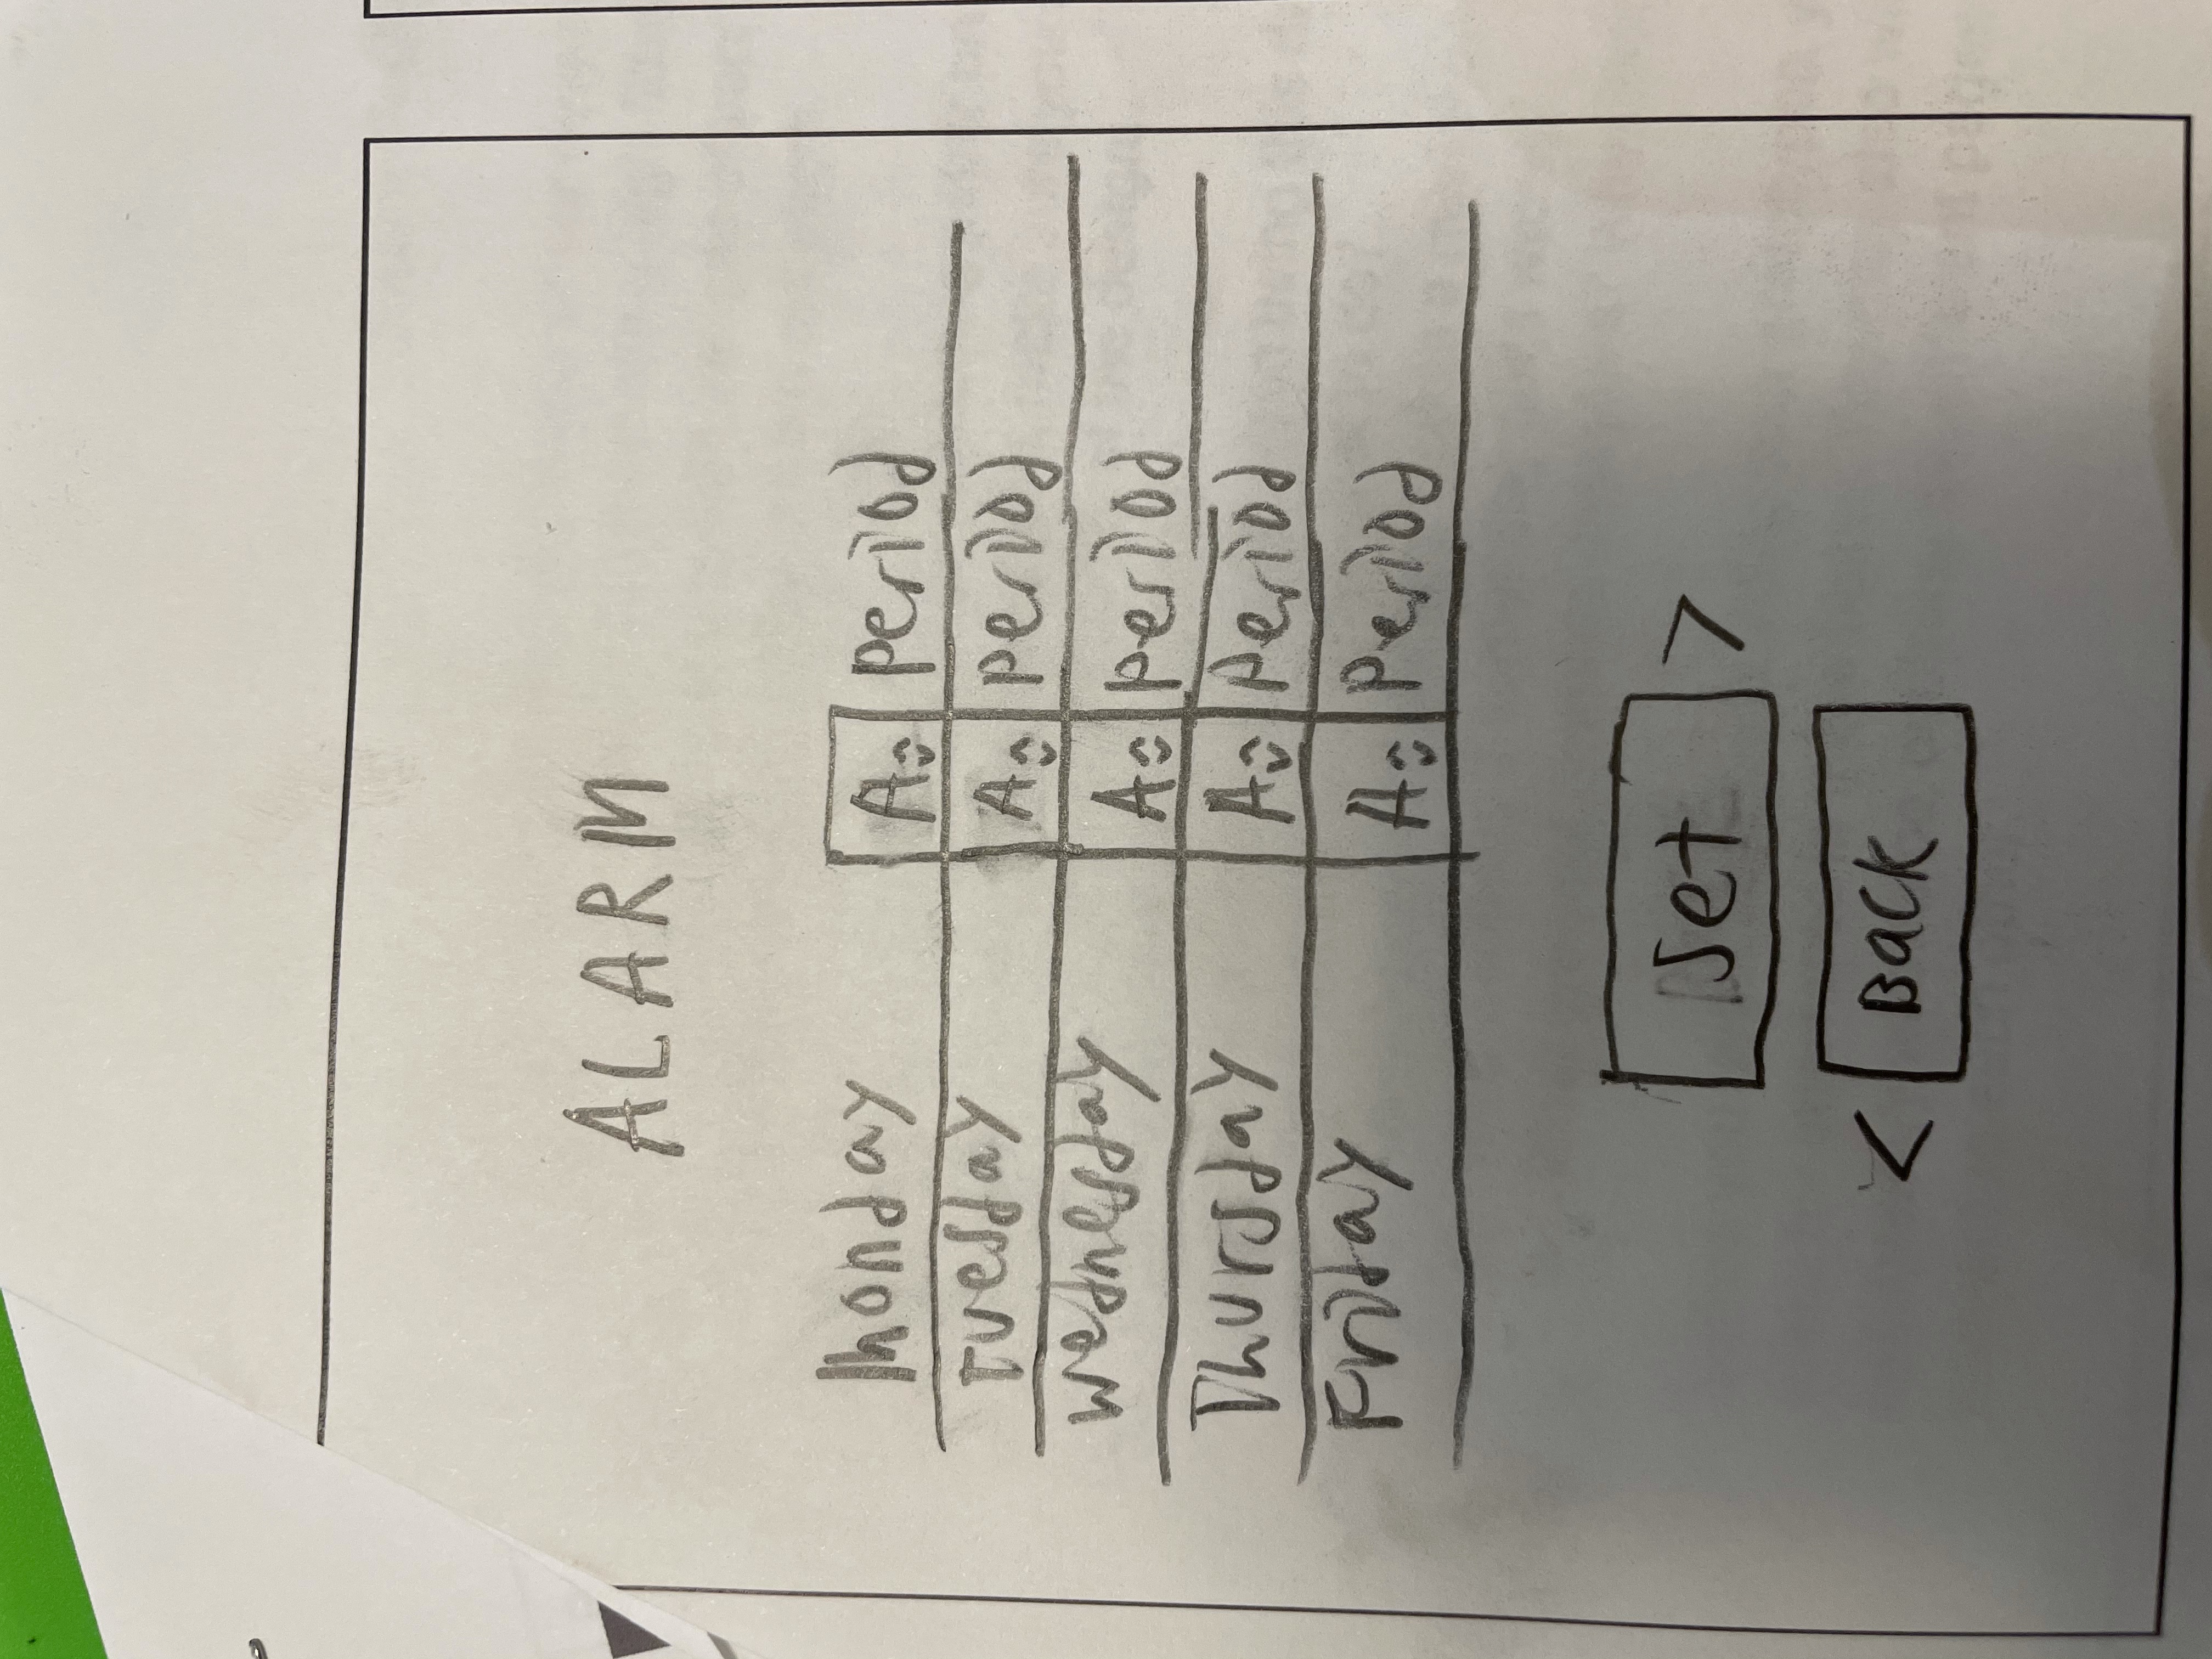 ALARM
Monday A Period
Tuesday A Period
Wednesday A Period
Thursday A Period
Friday A Period
Set >
< Back